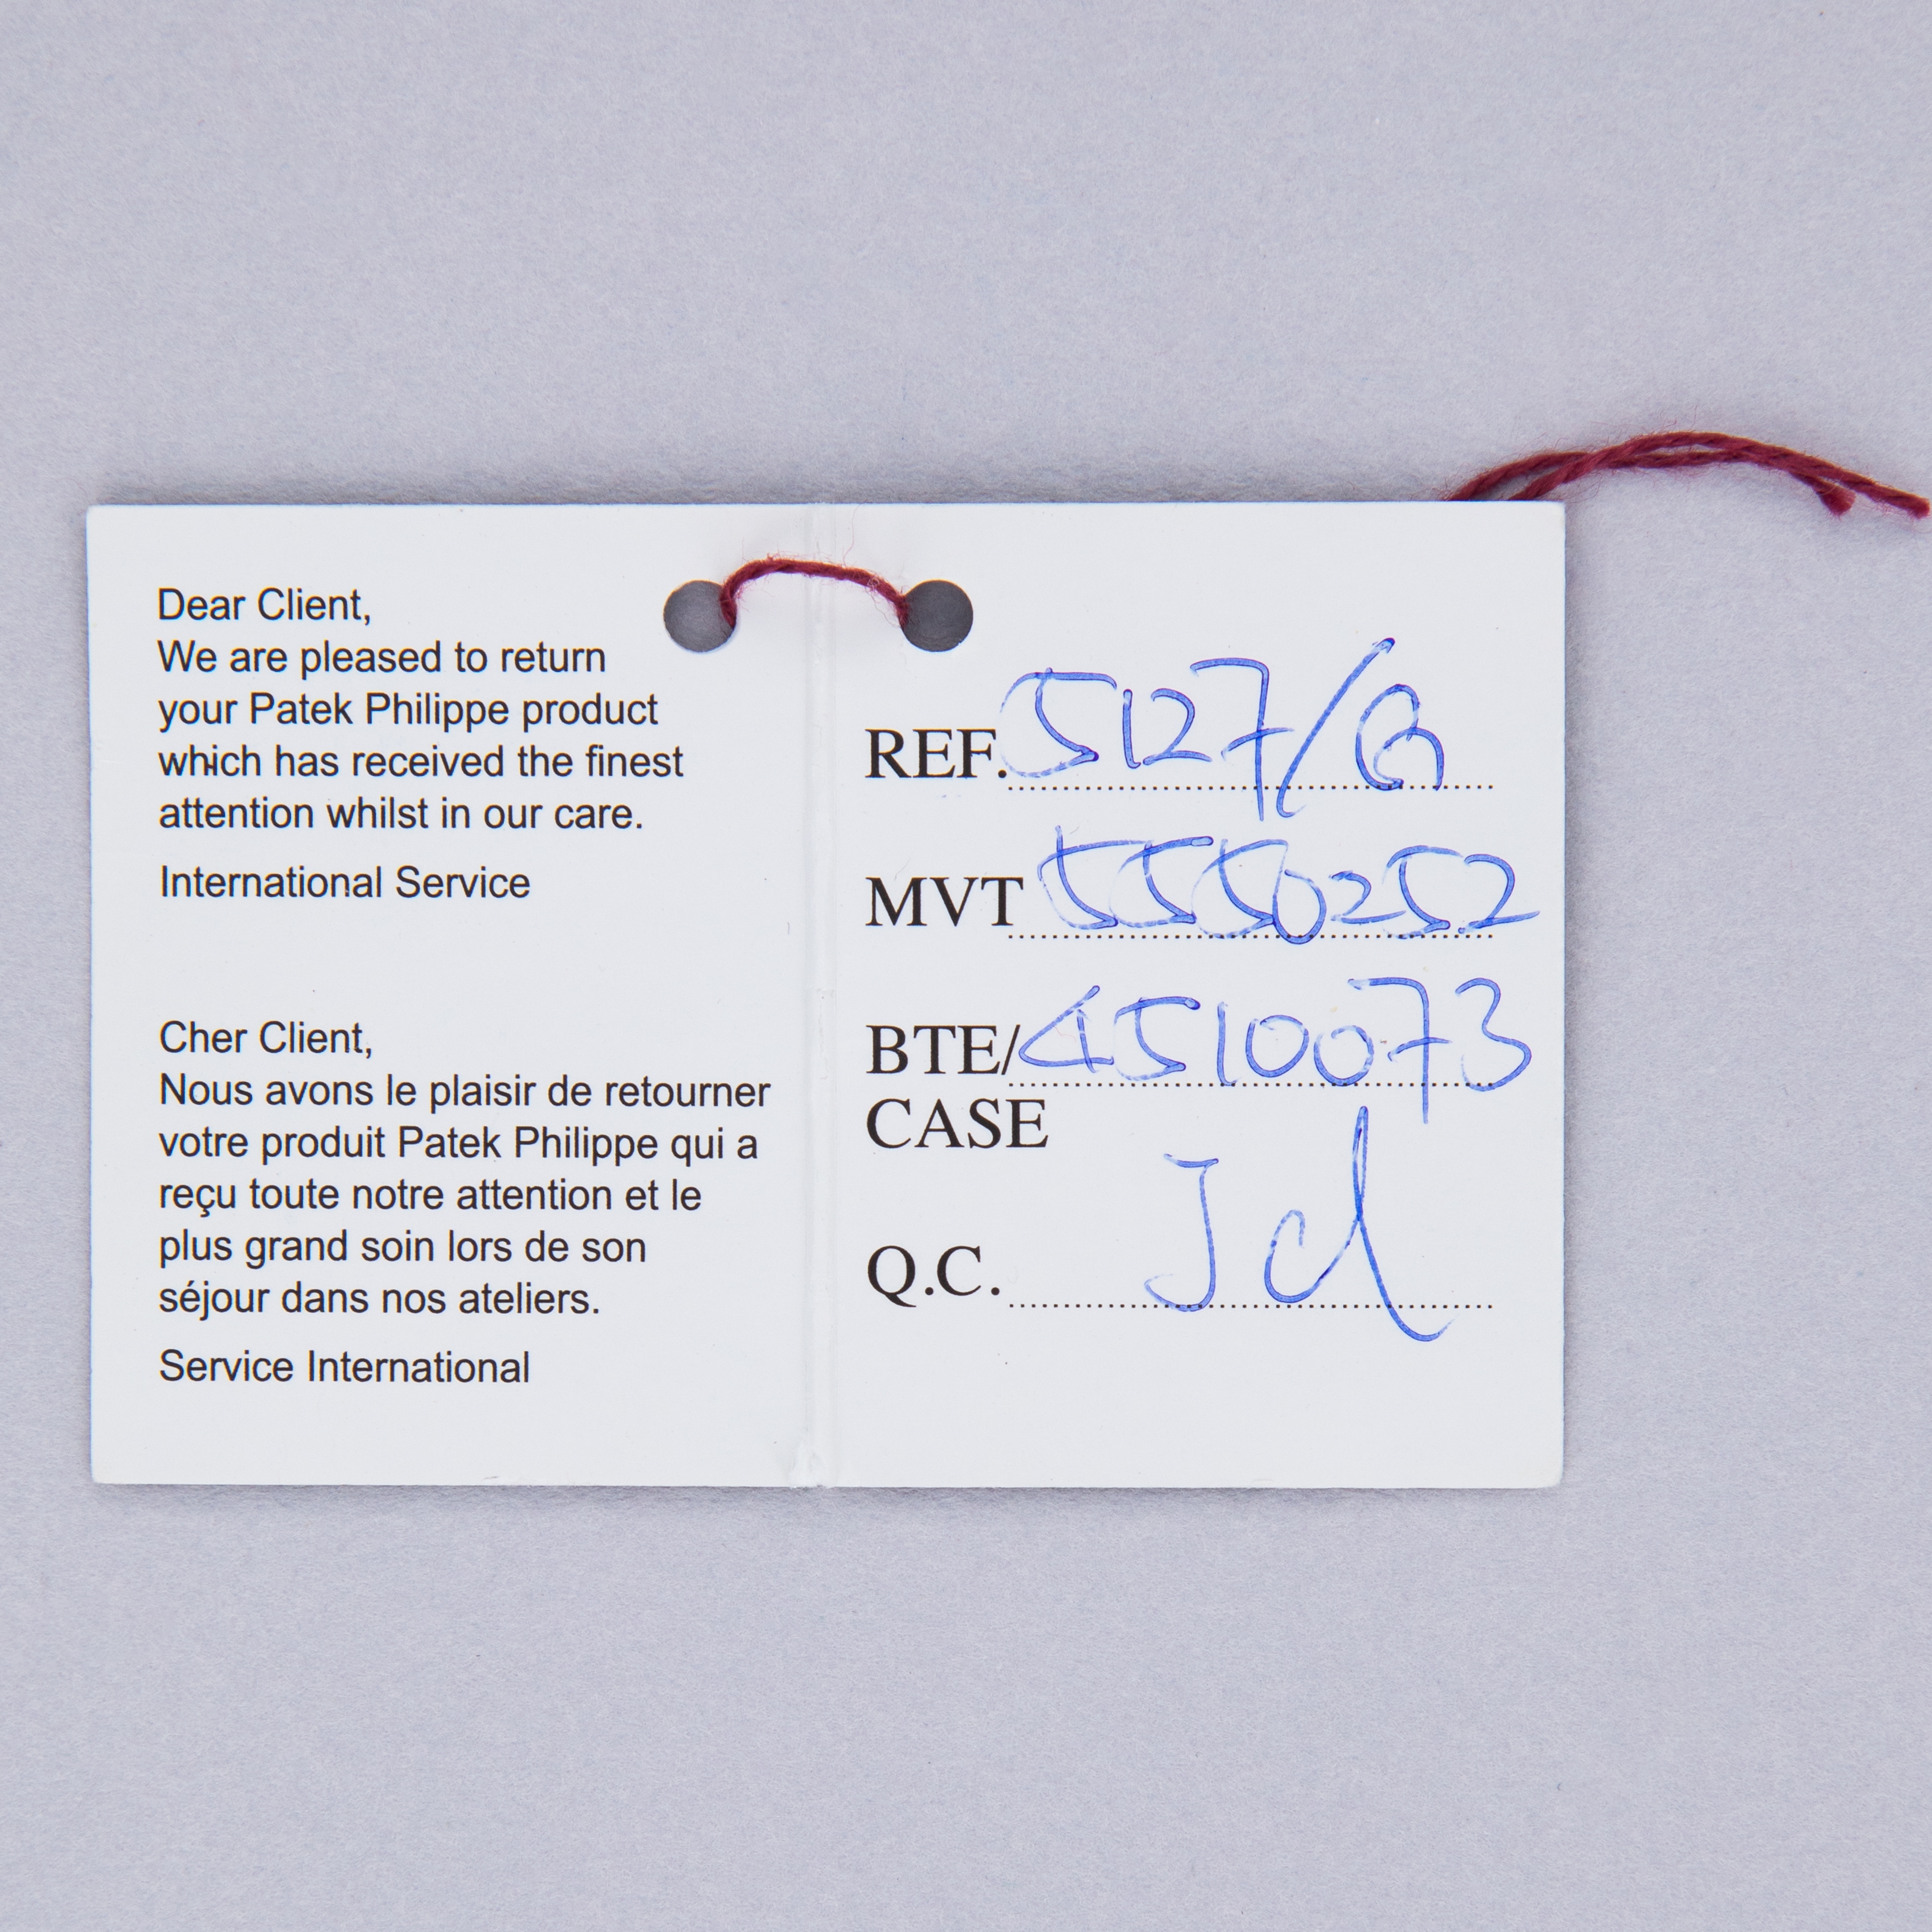 Dear Client,
We are pleased to return
your Patek Philippe product
which has received the finest
attention whilst in our care.
International Service
Cher Client,
Nous avons le plaisir de retourner
votre produit Patek Philippe qui a
reçu toute notre attention et le
plus grand soin lors de son
séjour dans nos ateliers.
Service International
REF. 5127/G
MVT 5550252
BTE/ 4510073
CASE
Q.C.